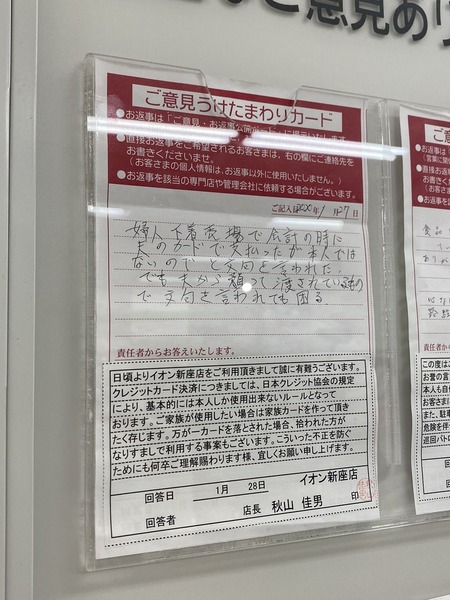 ご意見あ
ご意見うけたまわりカード
●お返事は「ご意見・お返事公開ボード」に掲示いたします。
●直接お返事をご希望されるお客さまは、右の欄にご連絡先を
お書きくださいませ。
(お客さまの個人情報は、お返事以外に使用いたしません。)
●お返事を該当の専門店や管理会社に依頼する場合がございます。
ご記入日 年1月27日
婦人下着売場で会計の時に
夫のカードで支払ったが本人では
ないのでと文句を言われた。
でも夫から頼って渡されているもの
で文句を言われても困る。
責任者からお答えいたします。
日頃よりイオン新座店をご利用頂きまして誠に有難うございます。
クレジットカード決済につきましては、日本クレジット協会の規定
により、基本的には本人しか使用出来ないルールとなって
おります。ご家族が使用したい場合は家族カードを作って頂き
たく存じます。万がーカードを落とされた場合、拾われた方が
なりすまして利用する事もございます。こういった不正を防ぐ
ためにも何卒ご理解賜わります様、宜しくお願い申し上げます。
イオン新座店
回答日 1月 28日
回答者 店長 秋山 佳男 印
ご意
●お返事は
(言葉に関
●直接お返
お書きく
(お客さ
●お返事を
食品
この度はご
お誉の言
本人も自
お客さま
また、駐車
危険を伴
巡回パトロ
回答
回答